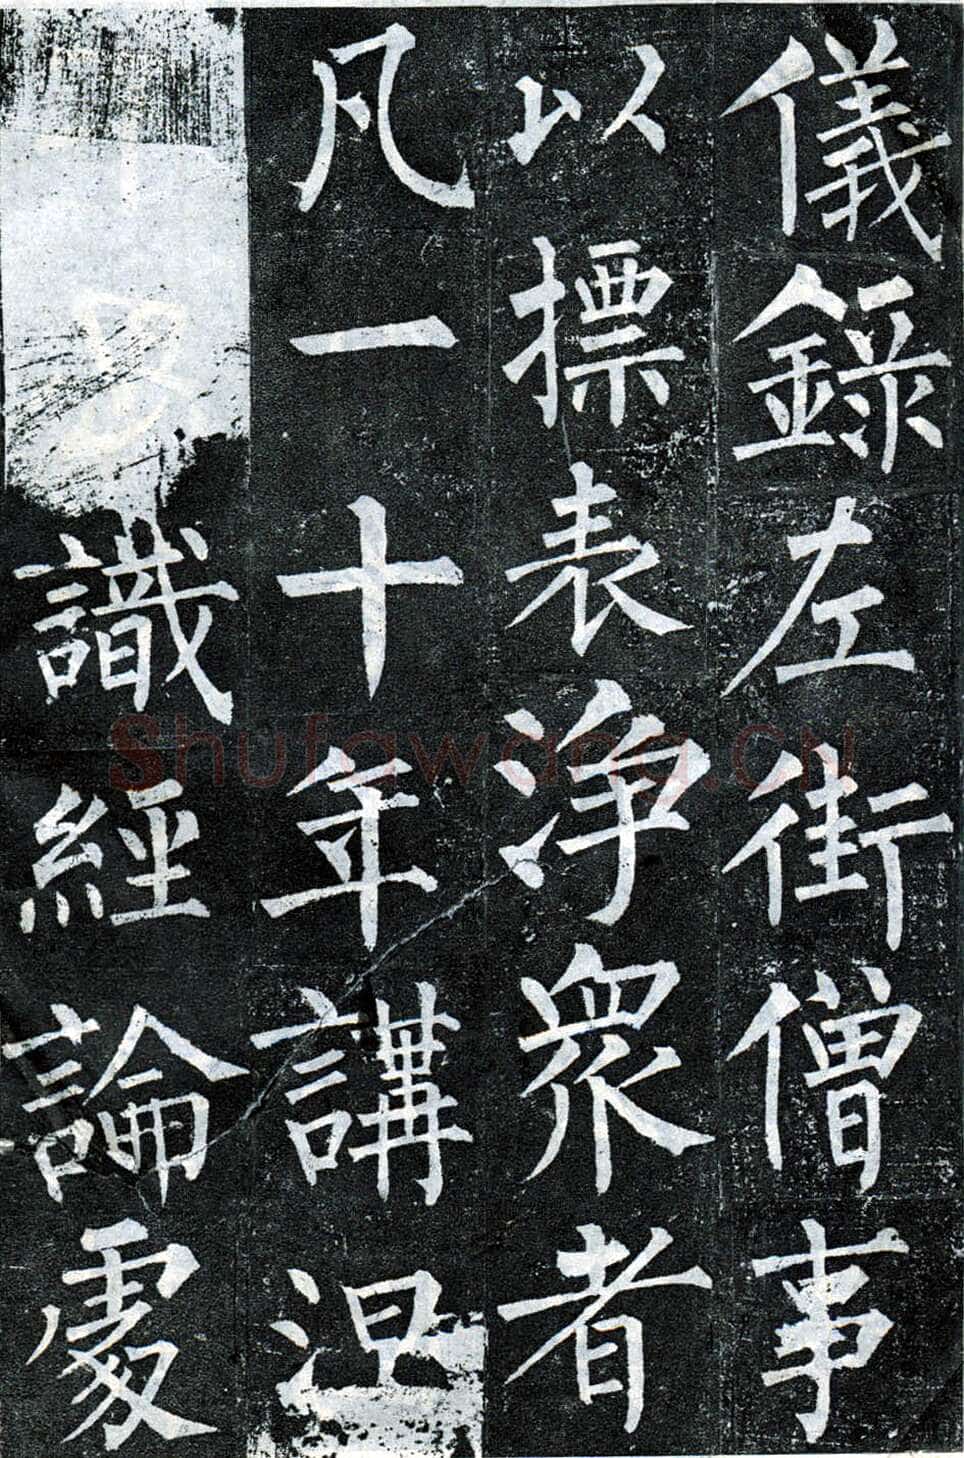 儀錄左街僧事
以標表淨衆者
凡一十年講涅
識經論處
Shufawang.cn